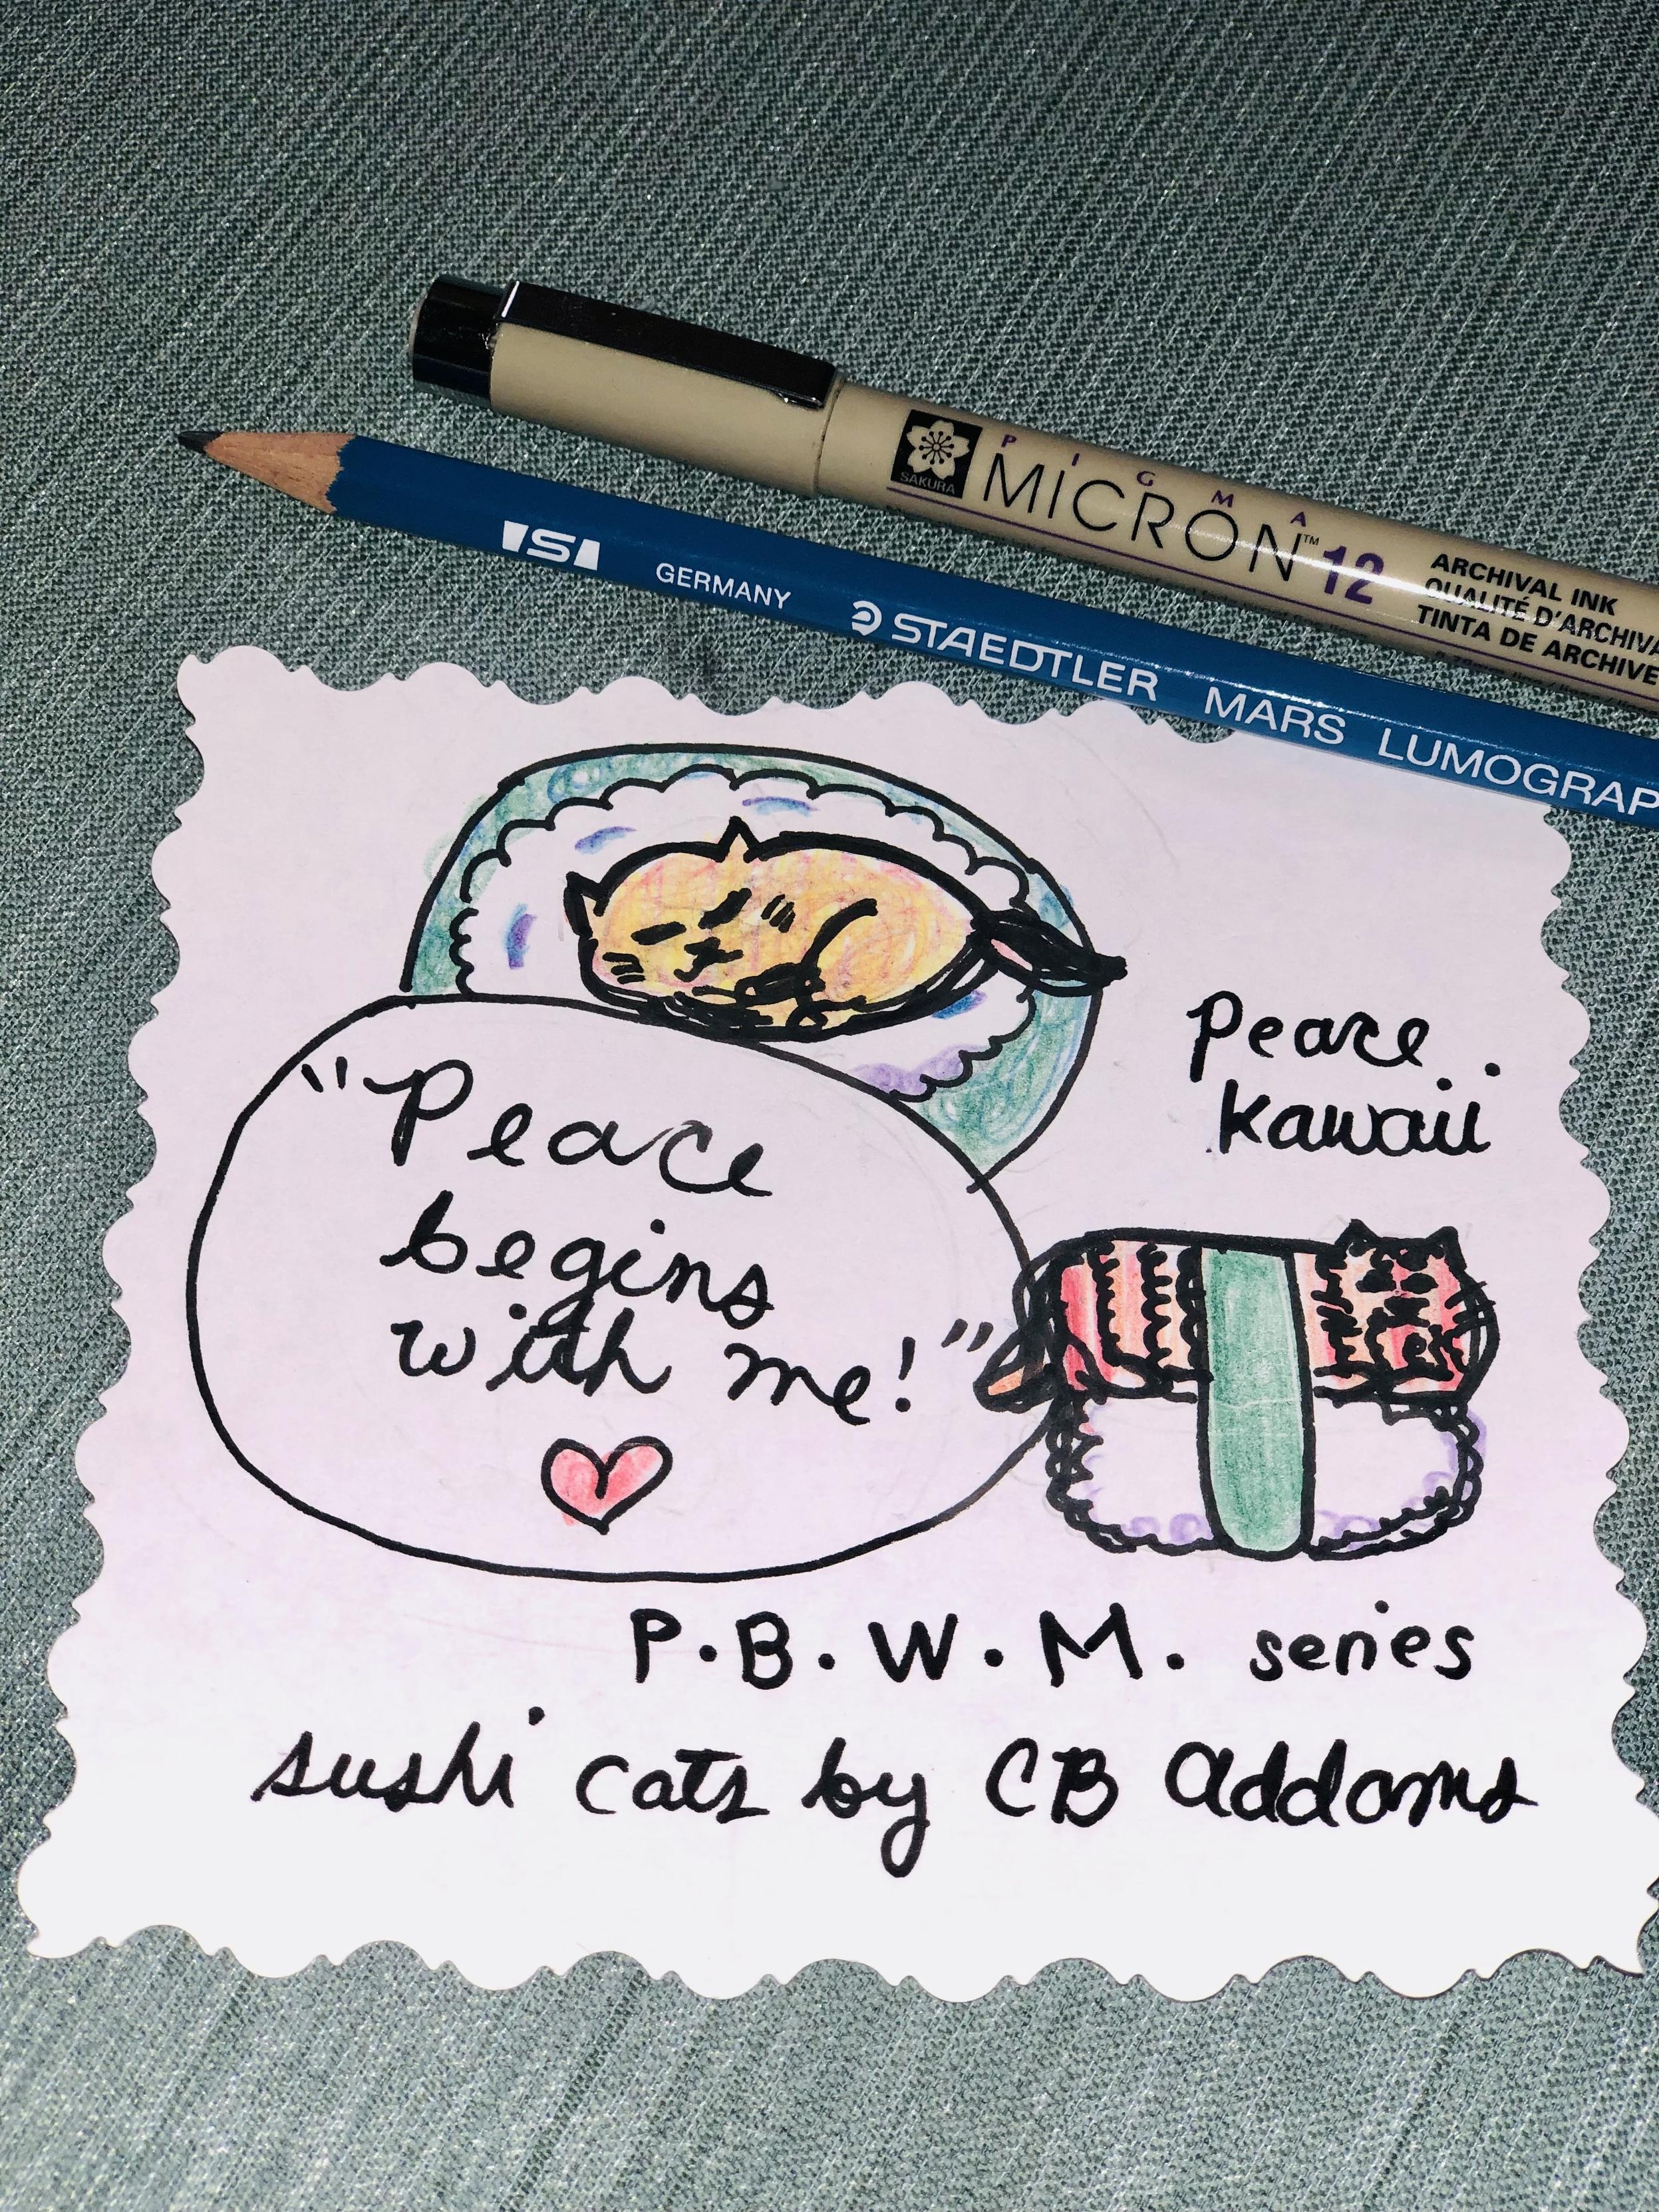 PIGMA
SAKURA
MICRON™ 12
ARCHIVAL INK
QUALITÉ D'ARCHIVA
TINTA DE ARCHIVE
GERMANY STAEDTLER MARS LUMOGRAP
Peace
Kawaii
"Peace
begins
with me!"
P.B.W.M. series
sushi cats by CB Addams